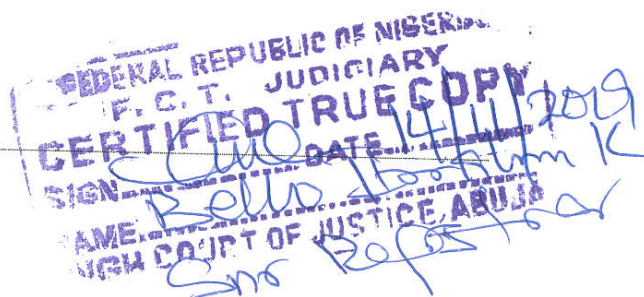 FEDERAL REPUBLIC OF NIGERIA
F. C. T. JUDICIARY
CERTIFIED TRUE COPY
SIGN DATE 14/11/2019
Bello K
NAME
HIGH COURT OF JUSTICE, ABUJA
Snr